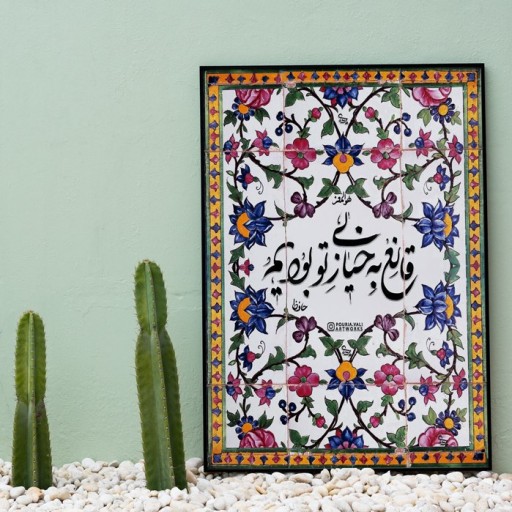 قانع به خیالی ز تو بودیم
حافظ
POURIA.VALI
ARTWORKS